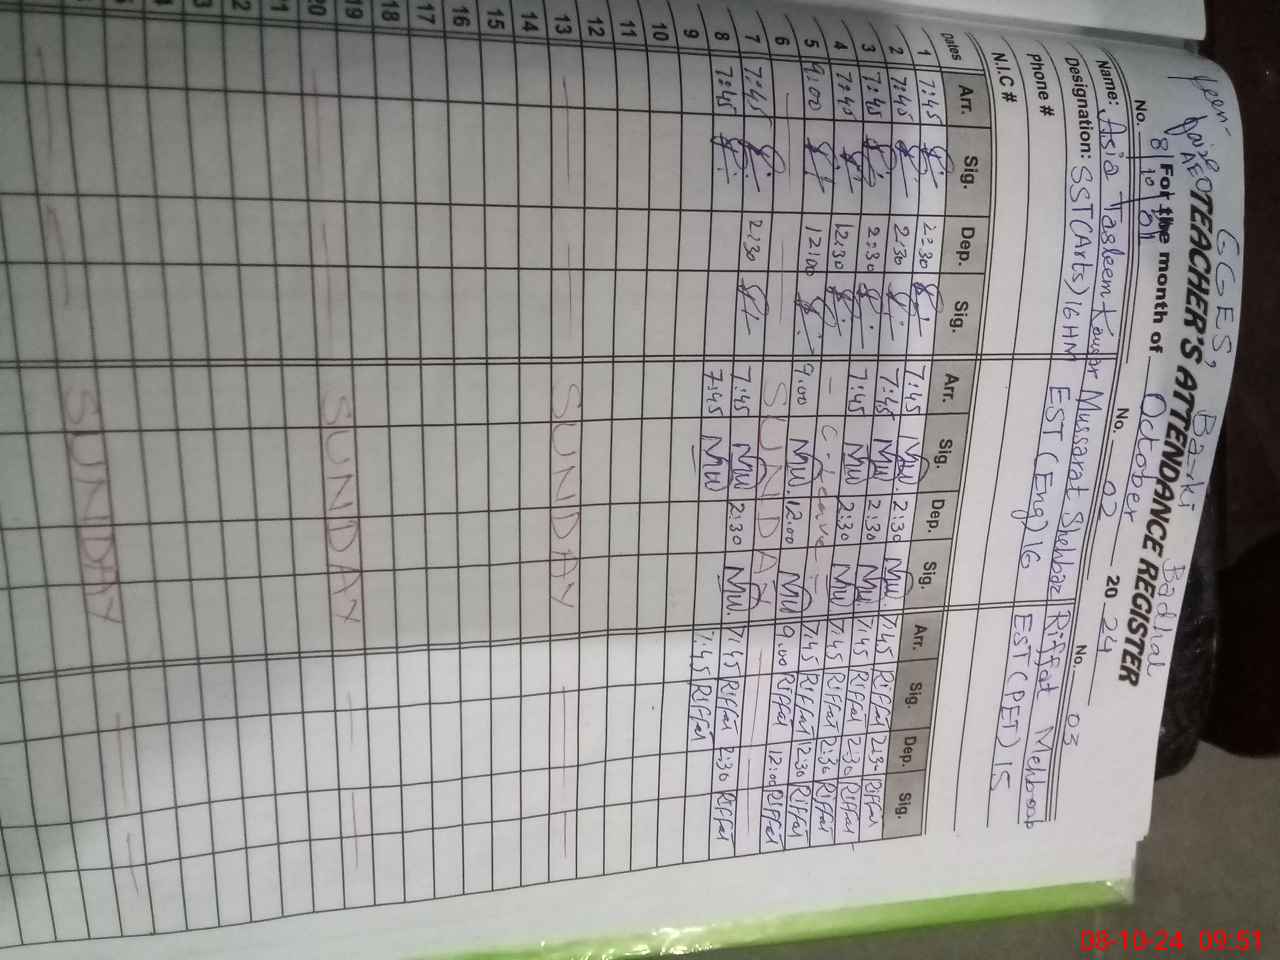 GGES, Barki Badhal
Seen
AEO
8/10/24
TEACHER'S ATTENDANCE REGISTER
For the month of October 2024
No. 01 No. 02 No. 03
Name: Asia Tasleem Kausar Mussarat Shehbaz Riffat Mehboob
Designation: SST(Arts)16HM EST(Eng)16 EST(PET)15
Phone #
N.I.C #
Dates Arr. Sig. Dep. Sig. Arr. Sig. Dep. Sig. Arr. Sig. Dep. Sig.
1 7:45 2:30 7:45 2:30 7:45 Riffat 2:30 Riffat
2 7:45 2:30 7:45 2:30 7:45 Riffat 2:30 Riffat
3 7:45 2:30 7:45 2:30 7:45 Riffat 2:30 Riffat
4 7:45 12:30 - C-leave - 7:45 Riffat 2:30 Riffat
5 9:00 12:00 9:00 12:00 9:00 Riffat 12:00 Riffat
6 SUNDAY
7 7:45 2:30 7:45 2:30 7:45 Riffat 2:30 Riffat
8 7:45 7:45 7:45 Riffat
9
10
11
12
13 SUNDAY
14
15
16
17
18
19
20 SUNDAY
SUNDAY
08-10-24 09:51